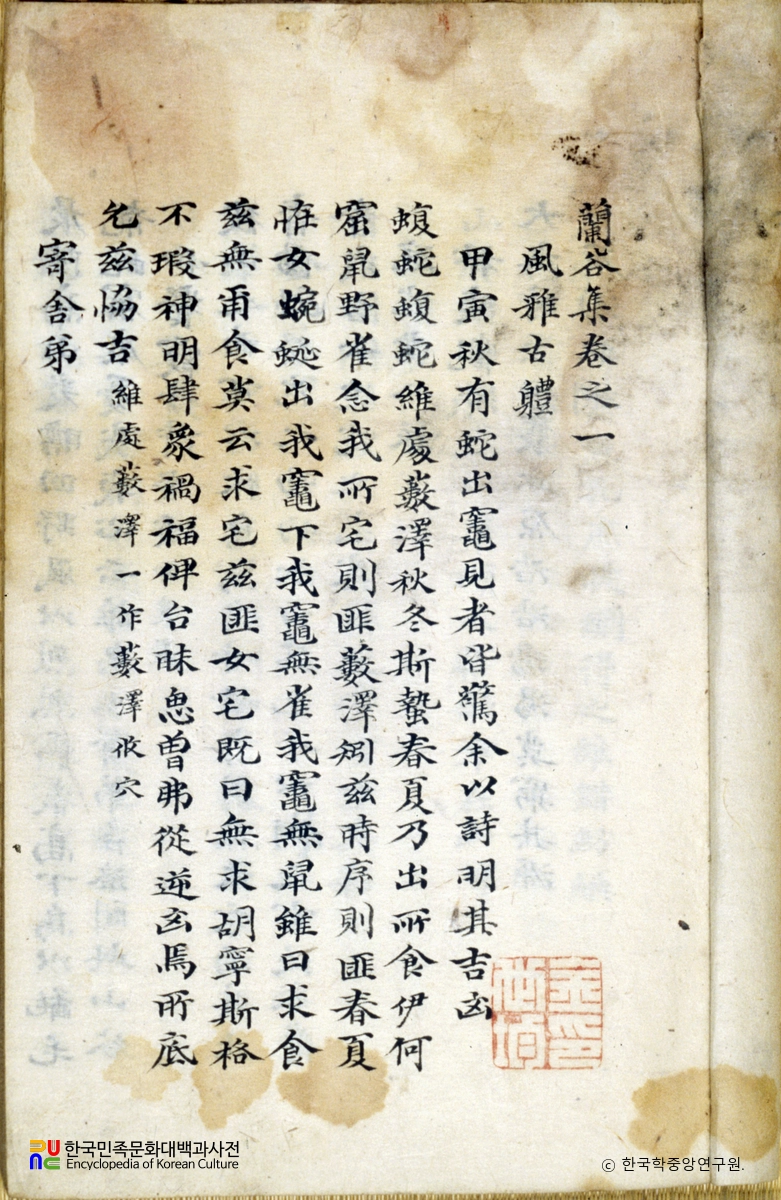 蘭谷集卷之一
風雅古軆
甲寅秋有蛇出竈見者皆驚余以詩明其吉凶
蝮蛇蝮蛇維處藪澤秋冬斯蟄春夏乃出所食伊何
窟鼠野雀念我所宅則匪藪澤矧茲時序則匪春夏
恠女蜿蜒出我竈下我竈無雀我竈無鼠雖曰求食
茲無甭食莫云求宅茲匪女宅既曰無求胡寧斯格
不瑕神明肆衆禍福俾台昧惷曾弗從逆凶焉所底
允茲恊吉維處藪澤一作藪澤攸穴
寄舍弟
한국민족문화대백과사전
Encyclopedia of Korean Culture
ⓒ 한국학중앙연구원.